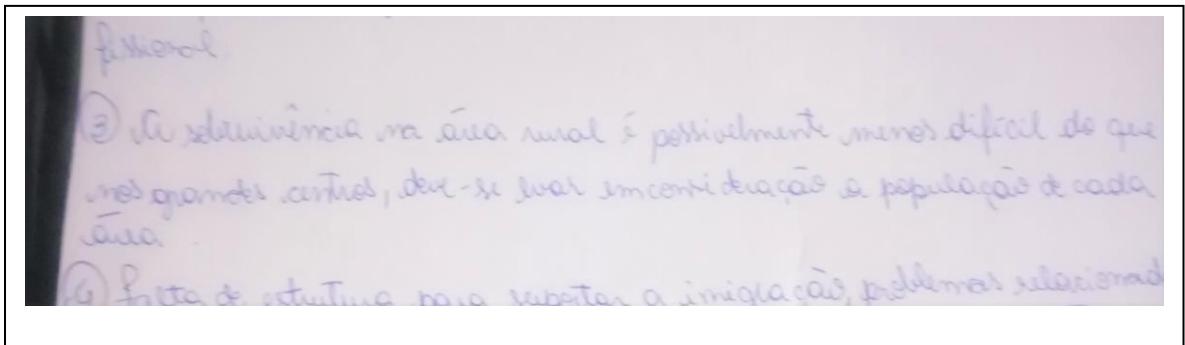 fissional
③ A sobrevivência na área rural é possivelmente menos difícil do que
nos grandes centros, deve-se levar em consideração a população de cada
área.
④ falta de estrutura para suportar a imigração, problemas relacionad